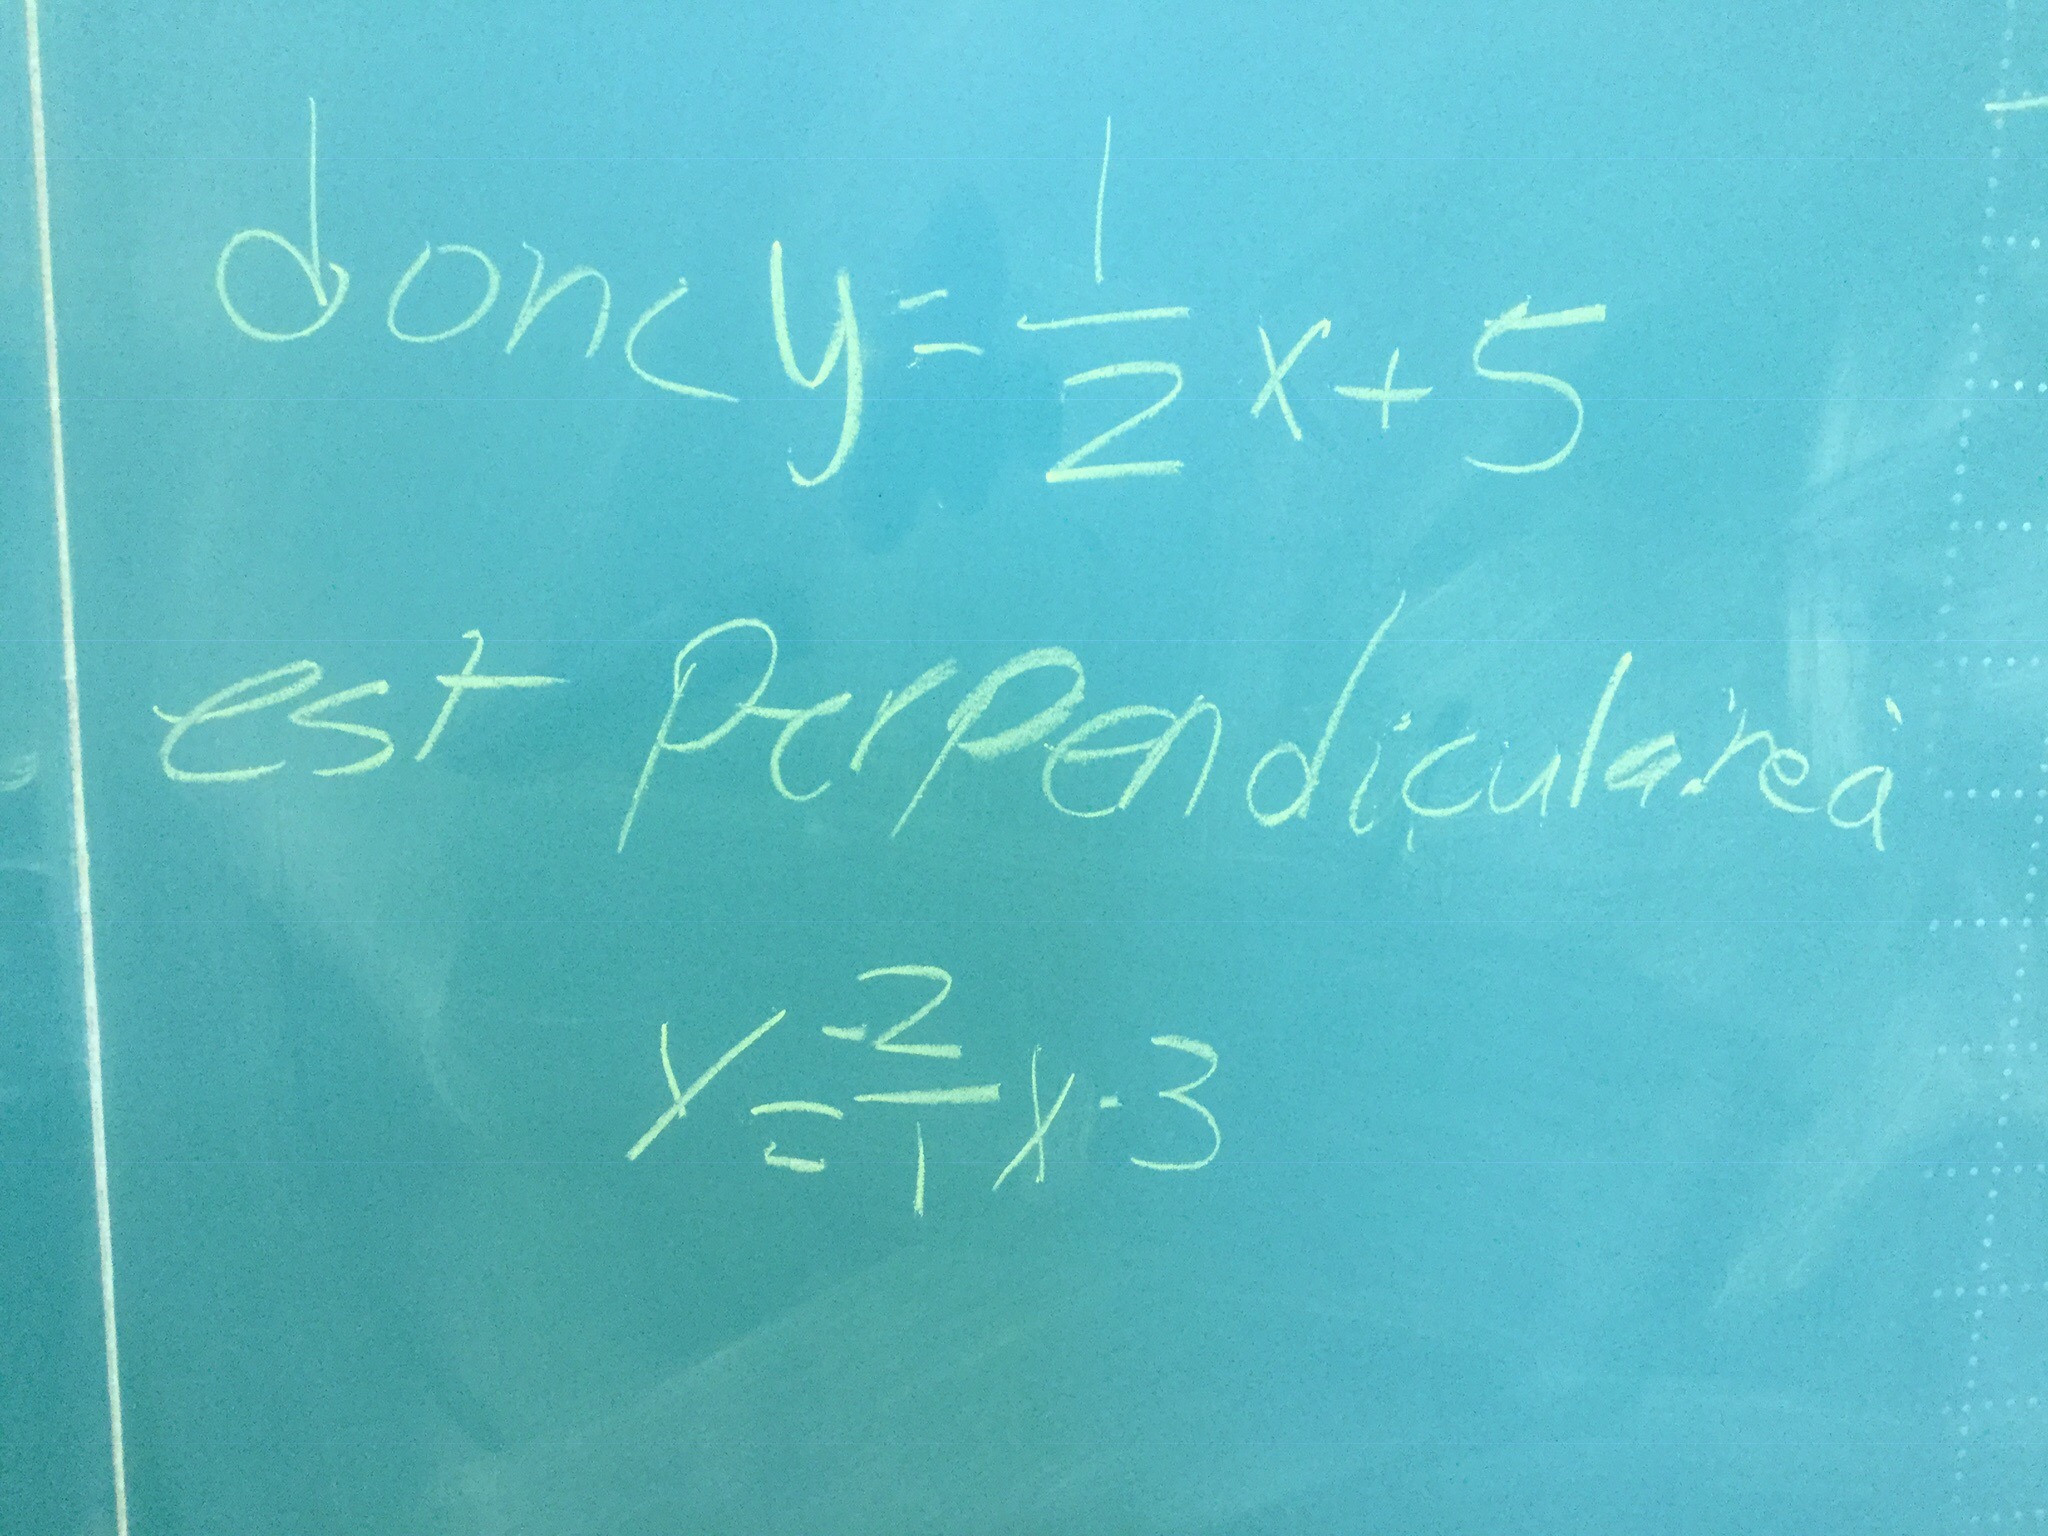 donc y = 1/2 x + 5
est perpendiculaire à
y = -2/1 x - 3